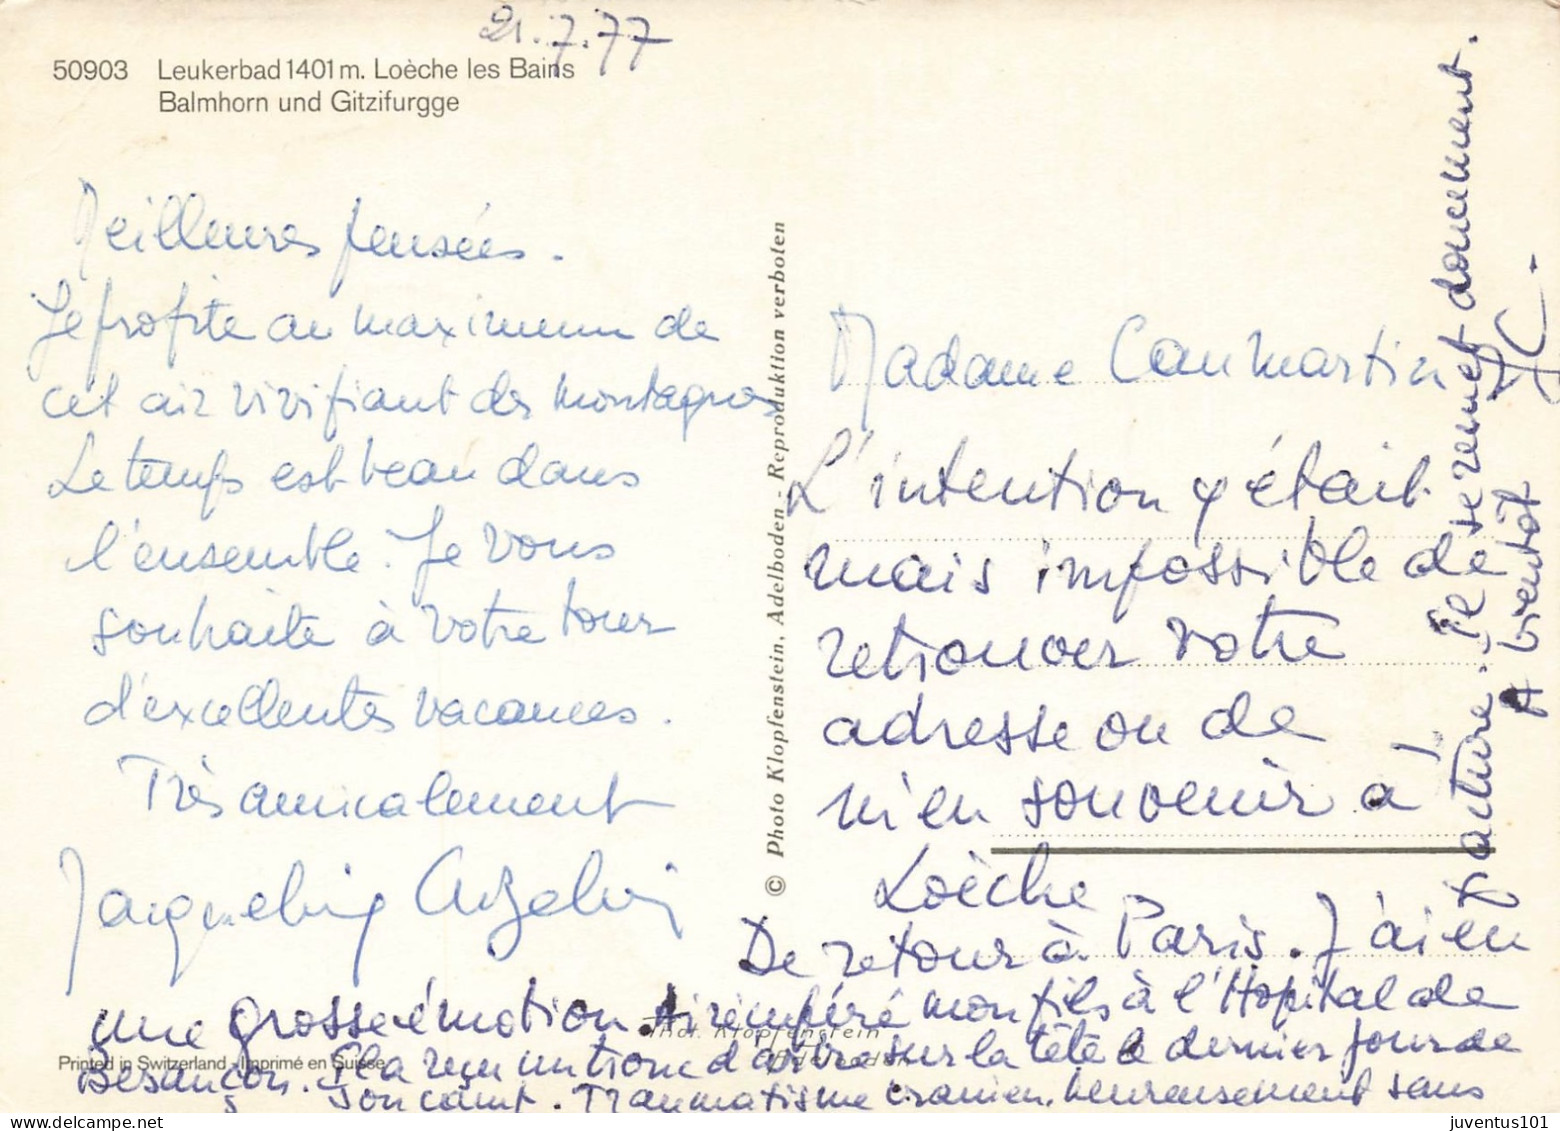 21.7.77
50903 Leukerbad 1401 m. Loèche les Bains
Balmhorn und Gitzifurgge
Meilleures pensées.
Je profite au maximum de
cet air vivifiant des montagnes
Le temps est beau dans
l'ensemble. Je vous
souhaite à votre tour
d'excellentes vacances.
Très amicalement
Jacqueline
© Photo Klopfenstein, Adelboden - Reproduktion verboten
Madame Caumartin
L'intention y était
mais impossible de
retrouver votre
adresse ou de
m'en souvenir à
Loèche
De retour à Paris. J'ai eu
une grosse émotion. Ai récupéré mon fils à l'Hopital de
Besançon. Il a reçu un tronc d'arbre sur la tête le dernier jour de
son camp. Traumatisme cranien. heureusement sans
fracture. Il se remet doucement.
A bientôt JC.
Phot. Klopfenstein
Adelboden
Printed in Switzerland - Imprimé en Suisse
juventus101